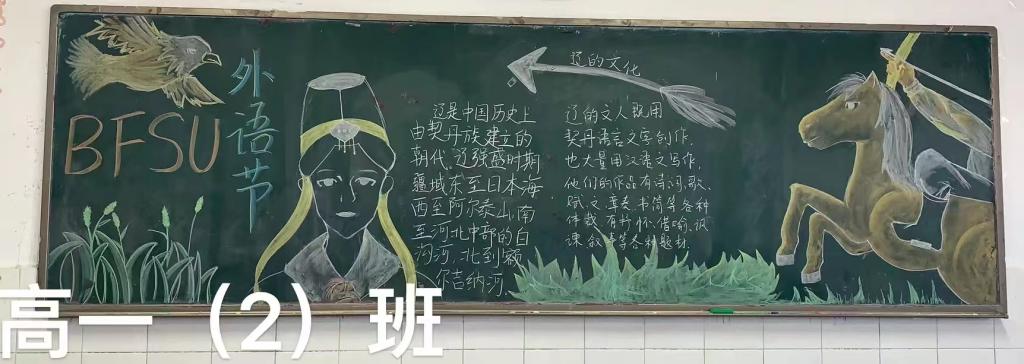 BFSU
外语节
辽是中国历史上
由契丹族建立的
朝代。辽强盛时期
疆域东至日本海
西至阿尔泰山,南
至河北中部的白
沟河,北到额
尔古纳河。
辽的文化
辽的文人既用
契丹语言文字创作,
也大量用汉语文写作,
他们的作品有诗、词、歌、
赋、文、章奏、书简等各种
体裁,有抒怀、借喻、讽
谏、叙事等各种题材。
高一（2）班